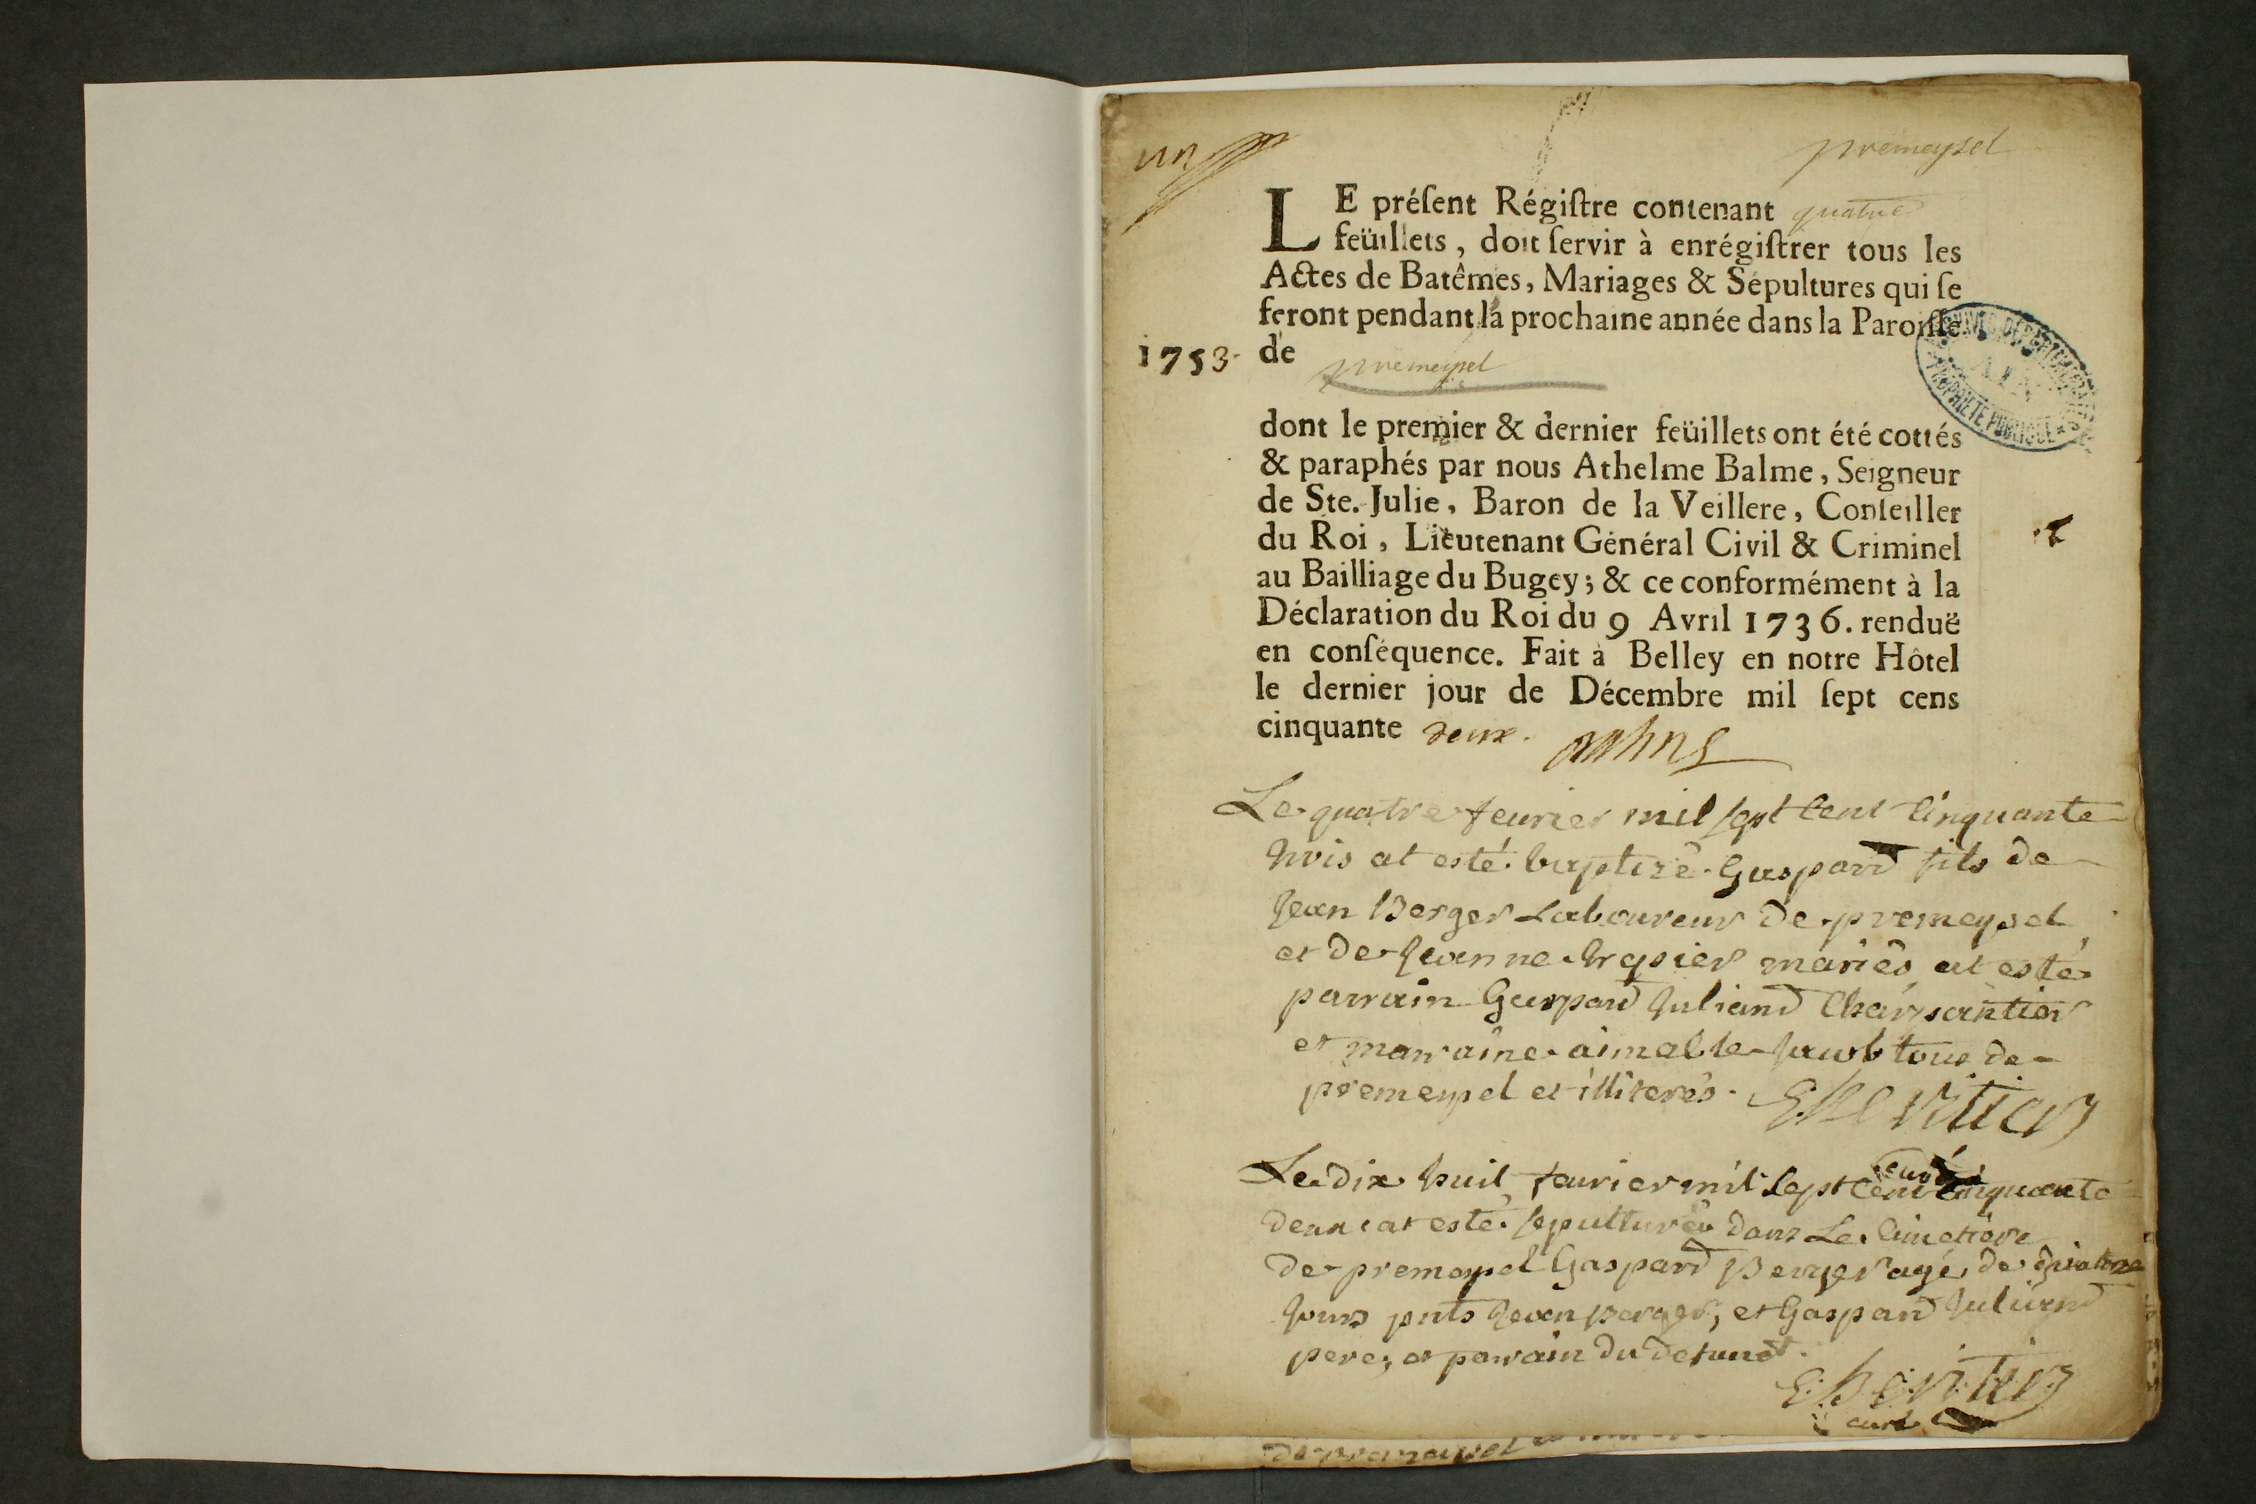 un
premeysel
LE préſent Régiſtre contenant quatre
feüillets, doit ſervir à enrégiſtrer tous les
Actes de Batêmes, Mariages & Sépultures qui ſe
feront pendant la prochaine année dans la Paroiſſe
1753. de premeysel
PROPRIETE PUBLIQUE
dont le premier & dernier feüillets ont été cottés
& paraphés par nous Athelme Balme, Seigneur
de Ste. Julie, Baron de la Veillere, Conſeiller
du Roi, Lieutenant Général Civil & Criminel
au Bailliage du Bugey; & ce conformément à la
Déclaration du Roi du 9 Avril 1736. renduë
en conſéquence. Fait à Belley en notre Hôtel
le dernier jour de Décembre mil ſept cens
cinquante deux.
Le quatre feurier mil sept cent cinquante
trois at esté baptizé Gaspard fils de
Jean Berger Laboureur de premeysel
et de Jeanne mariés at esté
parrain Gaspard Juliand Charpantier
et marraine aimable tous de
premeysel et illiterés.
curé
Le dix huit feurier mil sept cent cinquante
at esté sepulturé dans Le Cimetiere
de premeysel Gaspard Berger agé de quatorze
jours pnts Jean Berger, et Gaspard Juliand
pere, et parrain du defunct.
curé
de premeysel